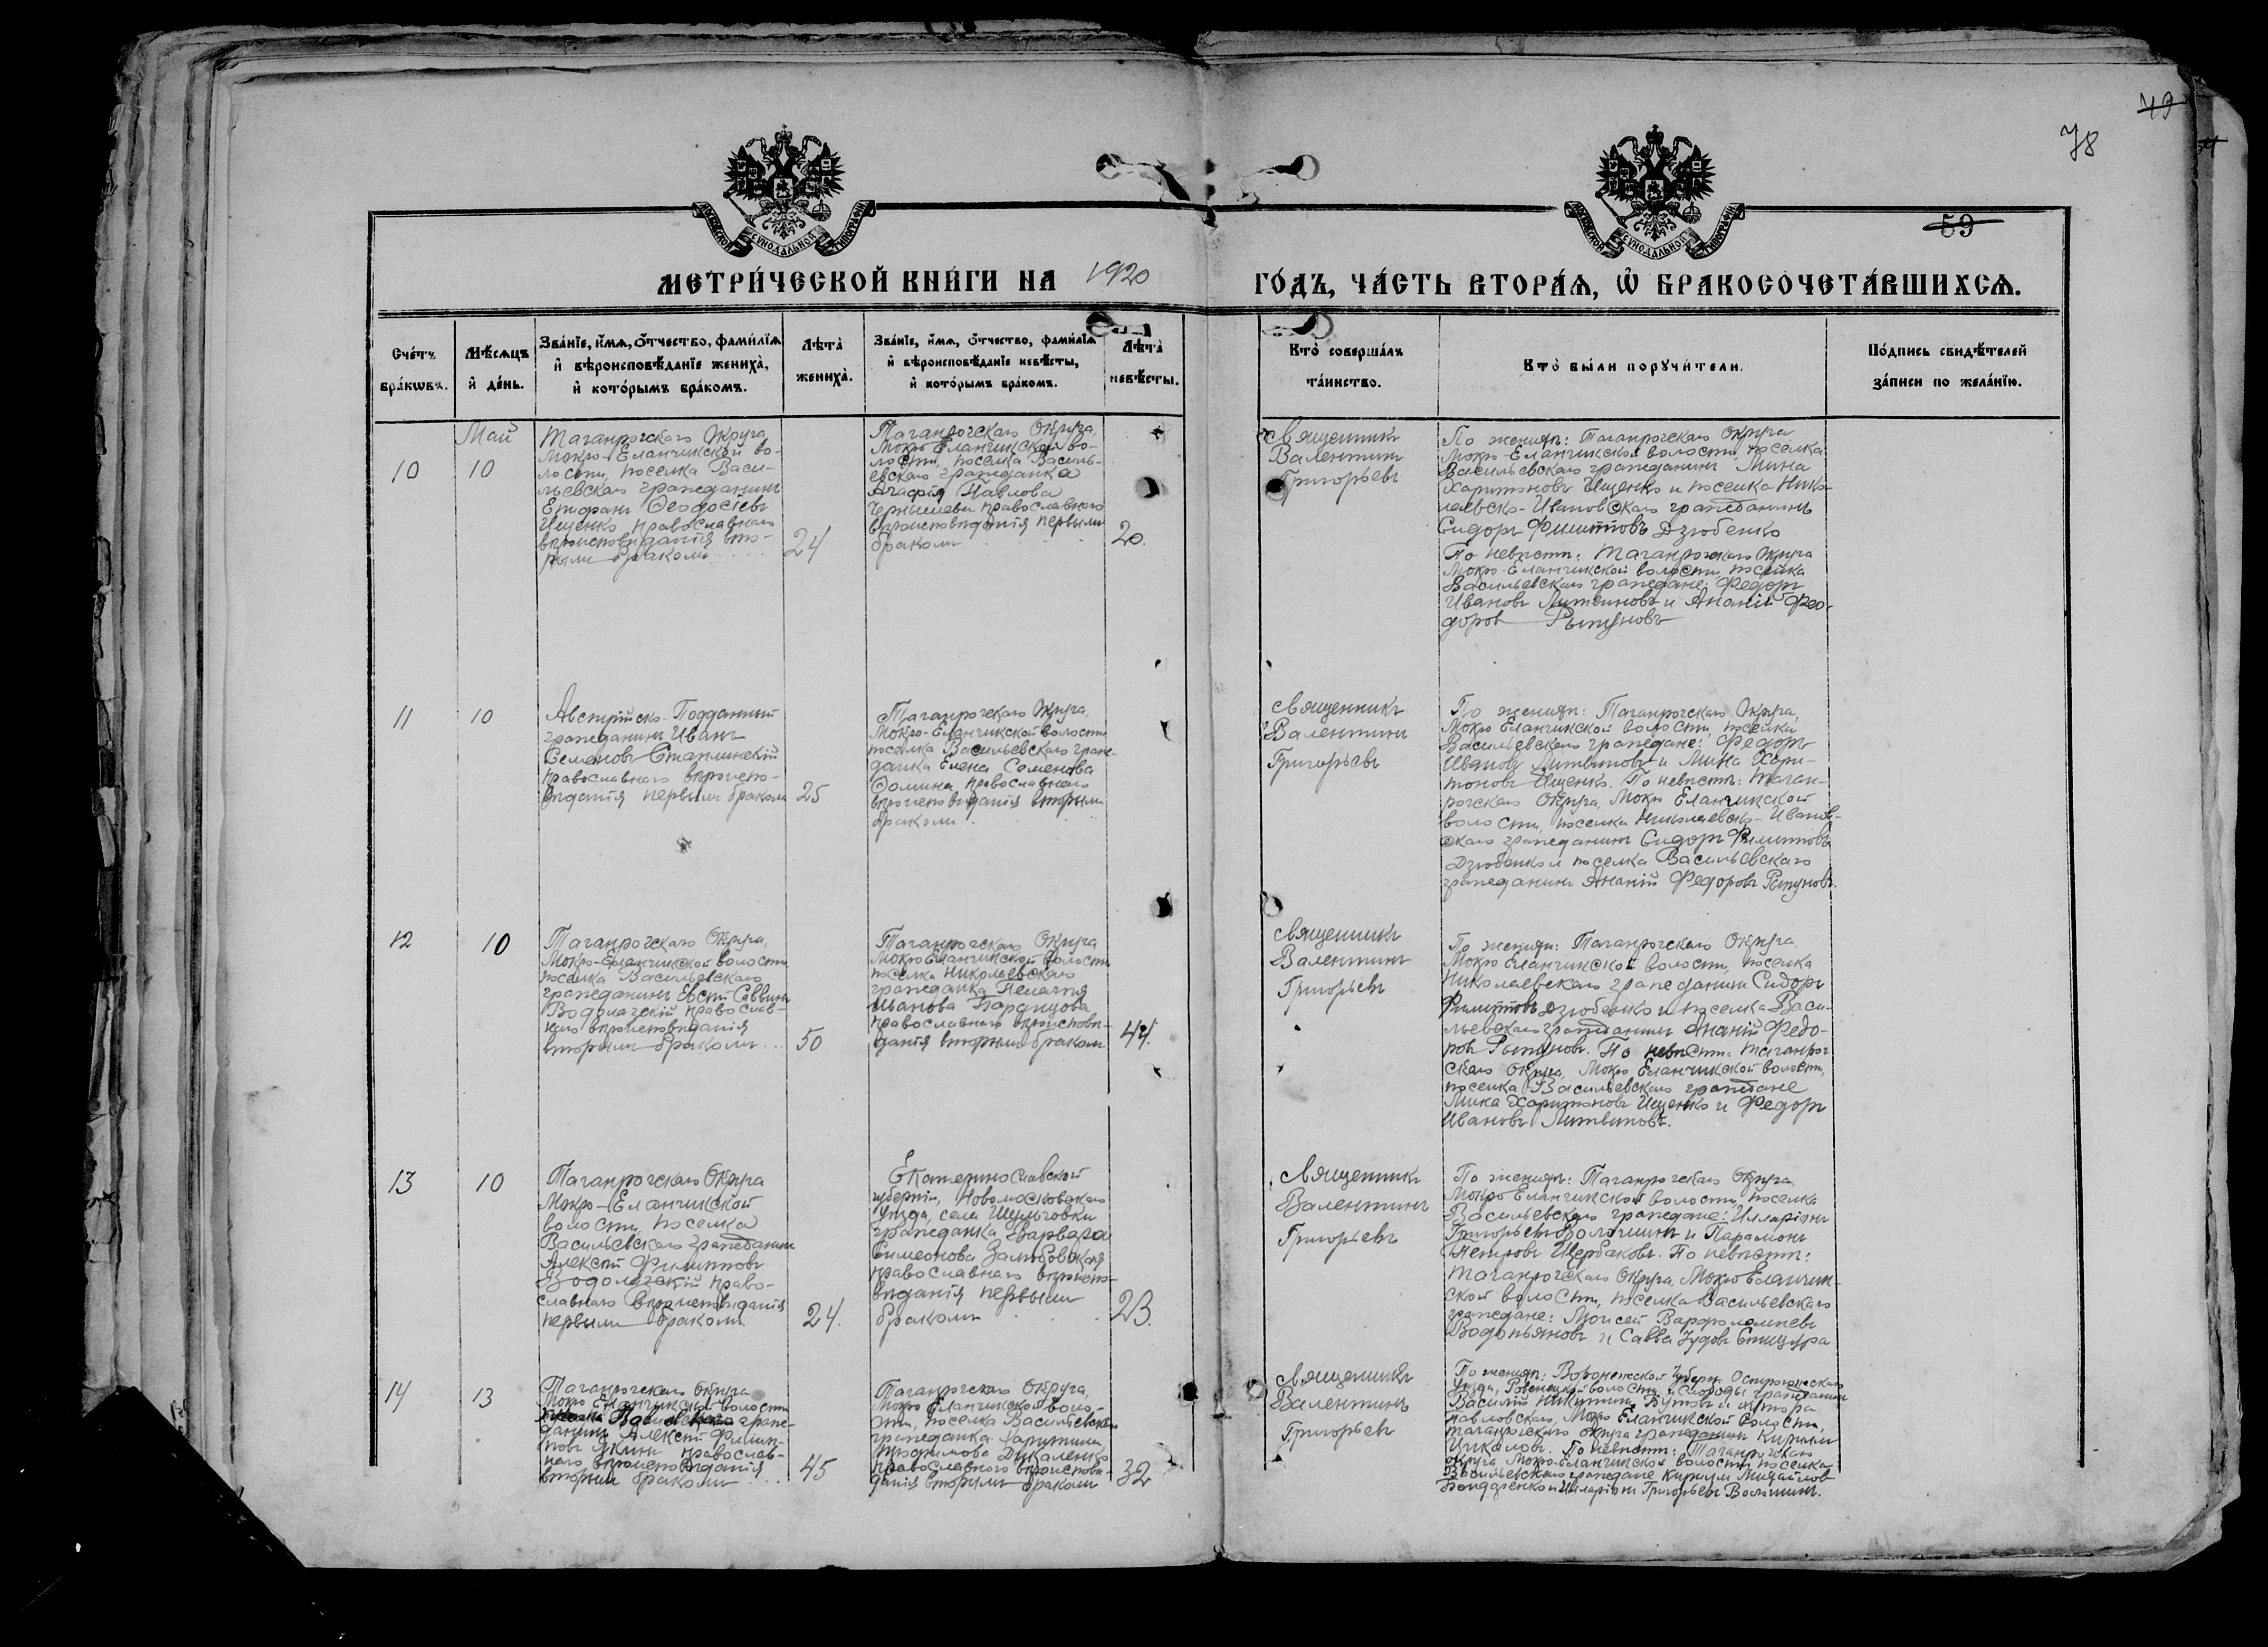 49
78
59
МОСКОВСКОЙ СѴНОДАЛЬНОЙ ТИПОГРАФІИ
МОСКОВСКОЙ СѴНОДАЛЬНОЙ ТИПОГРАФІИ
МЕТРИ́ЧЕСКОЙ КНИ́ГИ НА 1920 ГО́ДЪ, ЧА́СТЬ ВТОРА́Ѧ, Ѽ БРАКОСОЧЕТА́ВШИХСѦ.
Сче́тъ
бра́кѡвъ.
Мѣ́сѧцъ
и҆ де́нь.
Зва́нїе, и҆́мѧ, ѻ҆́тчество, фами́лїѧ
и҆ вѣроисповѣ́данїе жениха̀,
и҆ кото́рымъ бра́комъ.
Лѣ́та̀
жениха̀.
Зва́нїе, и҆́мѧ, ѻ҆́тчество, фами́лїѧ
и҆ вѣроисповѣ́данїе невѣ́сты,
и҆ кото́рымъ бра́комъ.
Лѣ́та̀
невѣ́сты.
Кто̀ соверша́лъ
та́инство.
Кто̀ бы́ли порꙋчи́тели.
По́дпись свидѣ́телей
за́писи по жела́нїю.
10
Май
10
Таганрогскаго Округа
Мокро-Еланчикской во-
лости, поселка Васи-
льевскаго гражданинъ
Феодосіевъ
Ищенко православнаго
вѣроисповѣданія вто-
рымъ бракомъ
24
Таганрогскаго Округа,
Мокро Еланчикской во-
лости, поселка Василь-
евскаго гражданка
Агафія Павлова
православнаго
вѣроисповѣданія первымъ
бракомъ
20.
Священникъ
Валентинъ
Григорьевъ
По женихѣ: Таганрогскаго Округа
Мокро-Еланчикской волости, поселка
Васильевскаго гражданинъ Мина
Харитоновъ Ищенко и поселка Нико-
лаевско-Ивановскаго гражданинъ
Сидоръ Филипповъ Дзюбенко
По невѣстѣ: Таганрогскаго Округа
Мокро-Еланчикской волости, поселка
Васильевскаго граждане: Федоръ
Ивановъ Литвиновъ и Ананій Фео-
доровъ Рыпуновъ
11
10
Австрійско-Подданный
гражданинъ Иванъ
Семеновъ
православнаго вѣроиспо-
вѣданія первымъ бракомъ
25
Таганрогскаго Округа,
Мокро-Еланчикской волости
поселка Васильевскаго граж-
данка Елена Семенова
Фомина, православнаго
вѣроисповѣданія вторымъ
бракомъ
Священникъ
Валентинъ
Григорьевъ
По женихѣ: Таганрогскаго Округа,
Мокро Еланчикской волости, поселка
Васильевскаго граждане: Федоръ
Ивановъ Литвиновъ и Мина Хари-
тоновъ Ищенко. По невѣстѣ: Таган-
рогскаго Округа, Мокро Еланчикской
волости, поселка Николаевско-Иванов-
скаго гражданинъ Сидоръ Филипповъ
Дзюбенко и поселка Васильевскаго
гражданинъ Ананій Федоровъ Рыпуновъ.
12
10
Таганрогскаго Округа,
Мокро-Еланчикской волости
поселка Васильевскаго
гражданинъ Саввинъ
Водолазскій православ-
наго вѣроисповѣданія
вторымъ бракомъ
50
Таганрогскаго Округа
Мокро Еланчикской волости
поселка Николаевскаго
гражданка Пелагія
Иванова Баранцова
православнаго вѣроисповѣ-
данія вторымъ бракомъ
44.
Священникъ
Валентинъ
Григорьевъ
По женихѣ: Таганрогскаго Округа
Мокро Еланчикской волости, поселка
Николаевскаго гражданинъ Сидоръ
Филипповъ Дзюбенко и поселка Васи-
льевскаго гражданинъ Ананій Федо-
ровъ Рыпуновъ. По невѣстѣ: Таганрог
скаго Округа, Мокро Еланчикской волости,
поселка Васильевскаго граждане
Мина Харитоновъ Ищенко и Федоръ
Ивановъ Литвиновъ.
13
10
Таганрогскаго Округа
Мокро-Еланчикской
волости, поселка
Васильевскаго гражданинъ
Алексѣй Филипповъ
Водолазскій право-
славнаго вѣроисповѣданія
первымъ бракомъ
24.
Екатеринославской
губерніи, Новомосковскаго
уѣзда, села Шульговки
гражданка Варвара
Симеонова
православнаго вѣроиспо-
вѣданія первымъ
бракомъ
23.
Священникъ
Валентинъ
Григорьевъ
По женихѣ: Таганрогскаго Округа,
Мокро Еланчикской волости, поселка
Васильевскаго граждане: Илларіонъ
Григорьевъ Волошинъ и Парамонъ
Петровъ Щербаковъ. По невѣстѣ:
Таганрогскаго Округа, Мокро Еланчик-
ской волости, поселка Васильевскаго
граждане: Моисей Варфоломеевъ
Водопьяновъ и Савва Іудовъ
14
13
Таганрогскаго Округа
Мокро Еланчикской волости
граж-
данинъ Алексѣй Филип-
повъ православ-
наго вѣроисповѣданія
вторымъ бракомъ
45
Таганрогскаго Округа,
Мокро Еланчикской воло-
сти, поселка Васильевскаго
гражданка Харитина
Трофимова Дукаленко
православнаго вѣроисповѣ-
данія вторымъ бракомъ
32
Священникъ
Валентинъ
Григорьевъ
По женихѣ: Воронежской губерн. Острогожскаго
уѣзда, Ровенской волости и слободы гражданинъ
Василій Никитинъ и хутора
Павловскаго, Мокро Еланчикской волости,
Таганрогскаго округа гражданинъ
По невѣстѣ: Таганрогскаго
округа, Мокро-Еланчикской волости, поселка
Васильевскаго граждане Михайловъ
Бондаренко и Илларіонъ Григорьевъ Волошинъ.